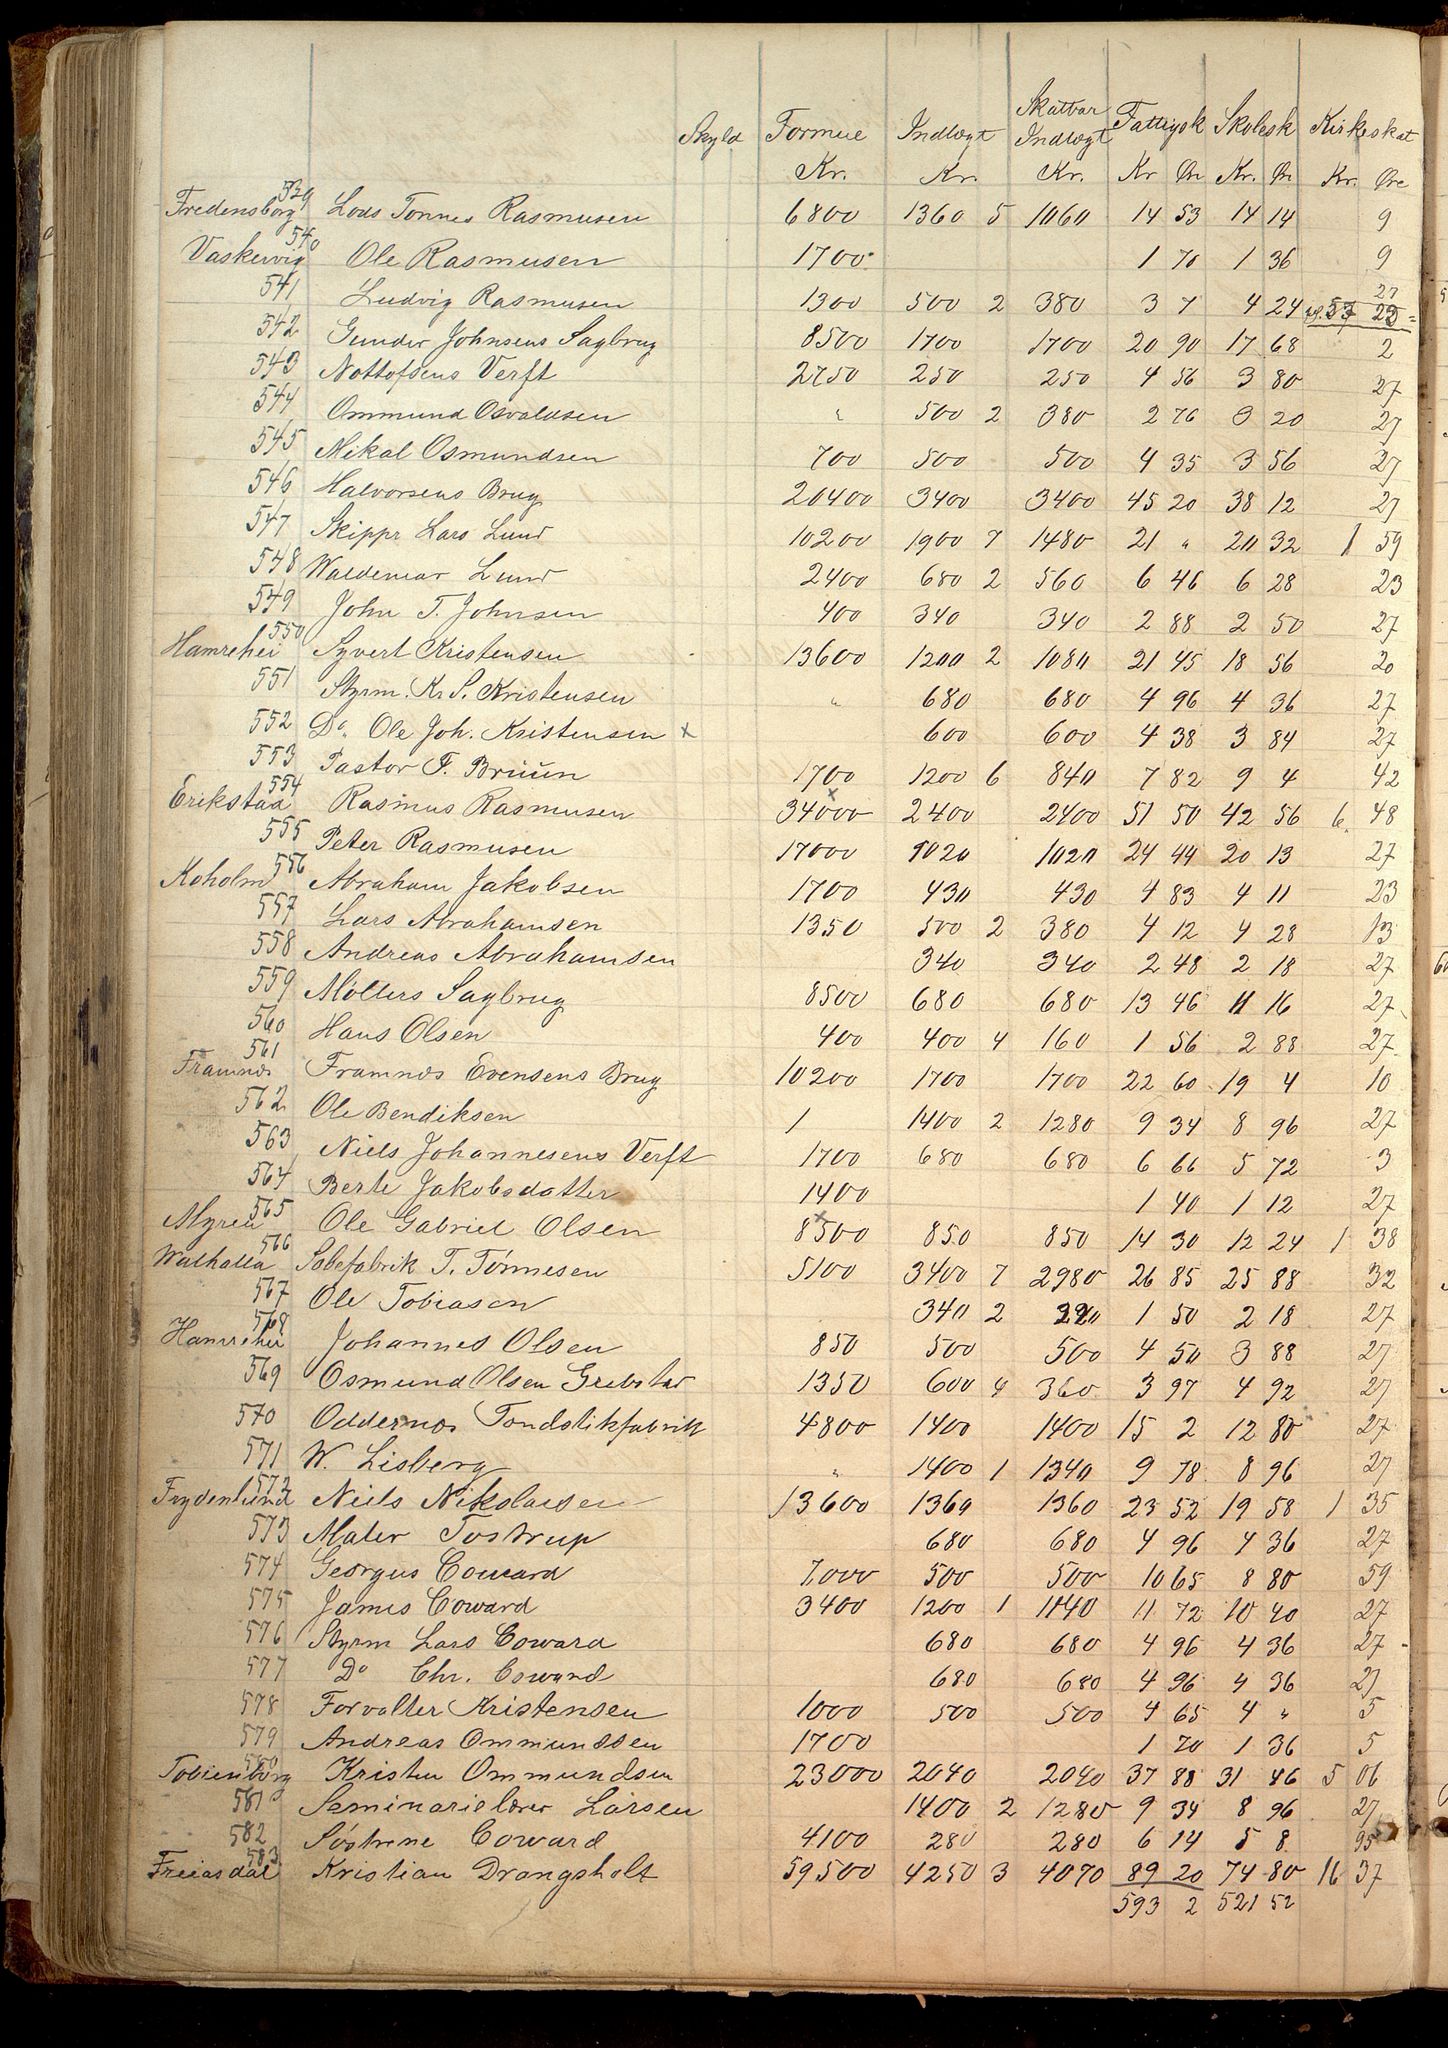 Skyld Formue Indtægt Skatbar Indtægt Fattigsk Skolesk Kirkeskat
Kr. Kr. Kr. Kr Øre Kr. Øre Kr. Øre
Fredensborg 539 Lods Tønnes Rasmusen 6800 1360 5 1060 14 53 14 14 9
Vaskervig 540 Ole Rasmusen 1700 1 70 1 36 9
541 Ludvig Rasmusen 1300 500 2 380 3 7 4 24 27
57 23
542 Gunder Johnsens Sagbrug 8500 1700 1700 20 90 17 68 2
543 Nottofsens Verft 2750 250 250 4 56 3 80 27
544 Ommund Osvaldsen " 500 2 380 2 76 3 20 27
545 Mikal Osmundsen 700 500 500 4 35 3 56 27
546 Halvorsens Brug 20400 3400 3400 45 20 38 12 27
547 Skippr Lars Lund 10200 1900 7 1480 21 " 20 32 1 59
548 Waldemar Lund 2400 680 2 560 6 46 6 28 23
549 John T. Johnsen 400 340 340 2 88 2 50 27
Hamrehei 550 Syvert Kristensen 13600 1200 2 1080 21 45 18 56 20
551 Styrm. Kr S. Kristensen " 680 680 4 96 4 36 27
552 Do. Ole Joh. Kristensen x 600 600 4 38 3 84 27
553 Pastor F. Brüün 1700 1200 6 840 7 82 9 4 42
Erikstad 554 Rasmus Rasmusen x 34000 2400 2400 51 50 42 56 6 48
555 Peter Rasmusen 17000 1020 1020 24 44 20 13 27
Koholm 556 Abraham Jakobsen 1700 430 430 4 83 4 11 23
557 Lars Abrahamsen 1350 500 2 380 4 12 4 28 13
558 Andreas Abrahamsen 340 340 2 48 2 18 27
559 Møllers Sagbrug 8500 680 680 13 46 11 16 27
560 Hans Olsen 400 400 4 160 1 56 2 88 27
Framnæs 561 Framnæs Evensens Brug 10200 1700 1700 22 60 19 4 10
562 Ole Bendiksen 1 1400 2 1280 9 34 8 96 27
563 Niels Johannesens Verft 1700 680 680 6 66 5 72 3
564 Berte Jakobsdatter 1400 1 40 1 12 27
Myren 565 Ole Gabriel Olsen x 8500 850 850 14 30 12 24 1 38
Walhalla 566 Sæbefabrik T. Tønnesen 5100 3400 7 2980 26 85 25 88 32
567 Ole Tobiasen 340 2 220 1 50 2 18 27
Hamrehei 568 Johannes Olsen 850 500 500 4 50 3 88 27
569 Osmund Olsen Grebstad 1350 600 4 360 3 97 4 92 27
570 Oddernæs Tøndstikfabrik 4800 1400 1400 15 2 12 80 27
571 W. Lisberg " 1400 1 1340 9 78 8 96 27
Frydenlund 572 Niels Nikolaisen 13600 1360 1360 23 52 19 58 1 35
573 Maler Tostrup 680 680 4 96 4 36 27
574 Georgus Coward 7000 500 500 10 65 8 80 59
575 James Coward 3400 1200 1 1140 11 72 10 40 27
576 Styrm Lars Coward 680 680 4 96 4 36 27
577 Do Chr. Coward 680 680 4 96 4 36 27
578 Forvalter Kristensen 1000 500 500 4 65 4 " 5
579 Andreas Ommundsen 1700 1 70 1 36 5
Tobienborg 580 Kristen Ommundsen 23000 2040 2040 37 88 31 46 5 06
581 Seminarielærer Larsen 1400 2 1280 9 34 8 96 27
582 Søstrene Coward 4100 280 280 6 14 5 8 95
Freiasdal 583 Kristian Drangsholt 59500 4250 3 4070 89 20 74 80 16 37
593 2 521 52